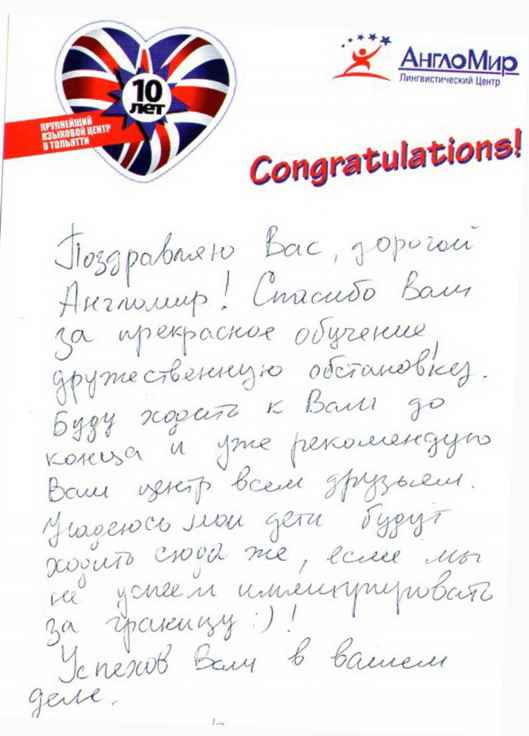 10
лет
КРУПНЕЙШИЙ
ЯЗЫКОВОЙ ЦЕНТР
В ТОЛЬЯТТИ
АнглоМир
Лингвистический Центр
Congratulations!
Поздравляю Вас, дорогой
Англомир! Спасибо Вам
за прекрасное обучение,
дружественную обстановку.
Буду ходить к Вам до
конца и уже рекомендую
Ваш центр всем друзьям.
Надеюсь мои дети будут
ходить сюда же, если мы
не успеем иммигрировать
за границу :) !
Успехов Вам в вашем
деле.